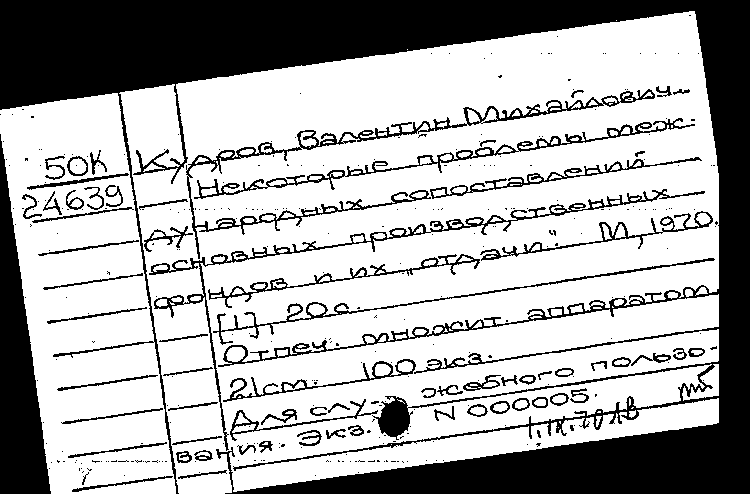 50К
24639
Кудров, Валентин Михайлович.
Некоторые проблемы меж-
дународных сопоставлений
основных производственных
фондов и их „отдачи". М, 1970.
[1], 20 с.
Отпеч. множит. аппаратом.
21 см. 100 экз.
Для слу- жебного пользо-
вания. Экз. N 000005.
1.IX.70 ЛВ
мб